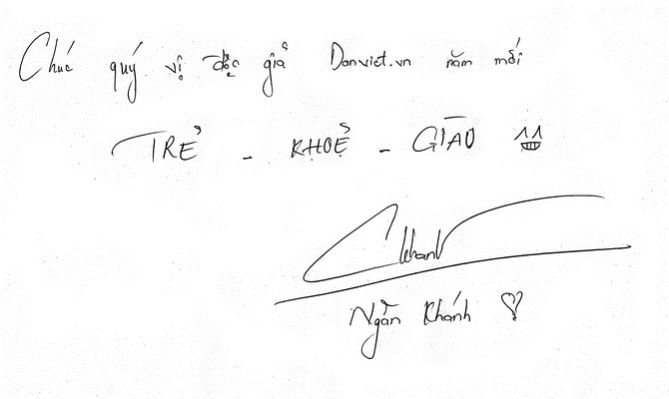 Chúc quý vị độc giả Danviet.vn năm mới
TRẺ - KHOẺ - GIÀU
Ngân Khánh